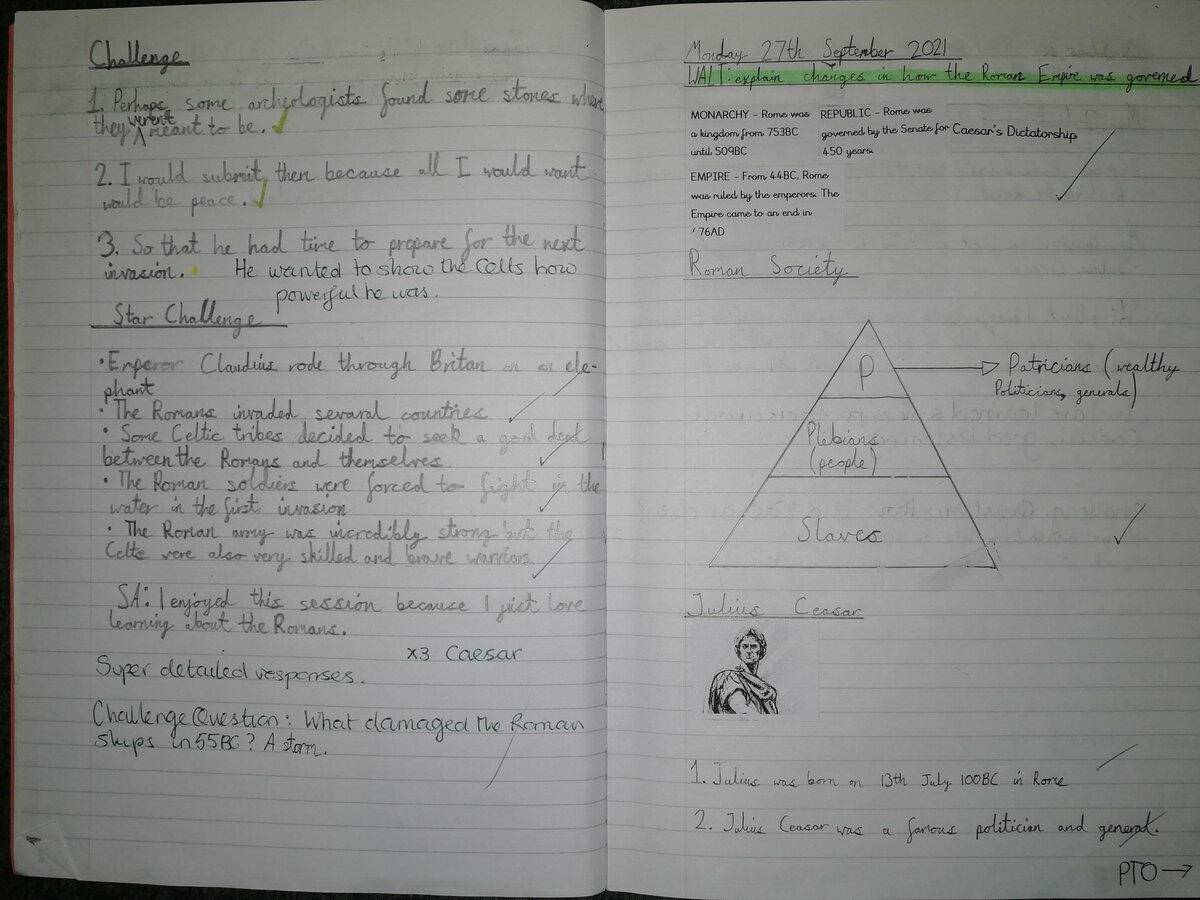 Challenge
1. Perhaps some archeologists found some stones where
they werent meant to be.
2. I would submit then because all I would want
would be peace.
3. So that he had time to prepare for the next
invasion. He wanted to show the Celts how
powerful he was.
Star Challenge
• Emperor Claudius rode through Britan on an ele-
phant
• The Romans invaded sevaral countries
• Some Celtic tribes decided to seek a good deal
between the Romans and themselves.
• The Roman soldiers were forced to fight in the
water in the first invasion
• The Roman army was incredibly strong but the
Celts were also very skilled and brave warriors.
SA: I enjoyed this session because I just love
learning about the Romans.
x3 Caesar
Super detailed responses.
Challenge Question: What damaged the Roman
ships in 55BC? A storm.
Monday 27th September 2021
WALT: explain changes in how the Roman Empire was governed
MONARCHY - Rome was
a kingdom from 753BC
until 509BC
REPUBLIC - Rome was
governed by the Senate for Caesar's Dictatorship
450 years.
EMPIRE - From 44BC, Rome
was ruled by the emperors. The
Empire came to an end in
76AD
Roman Society
P
Patricians (wealthy
Politicians, generals)
Plebians
(people)
Slaves
Julius Ceasar
1. Julius was born on 13th July 100BC in Rome
2. Julius Ceasar was a famous politician and general.
PTO →